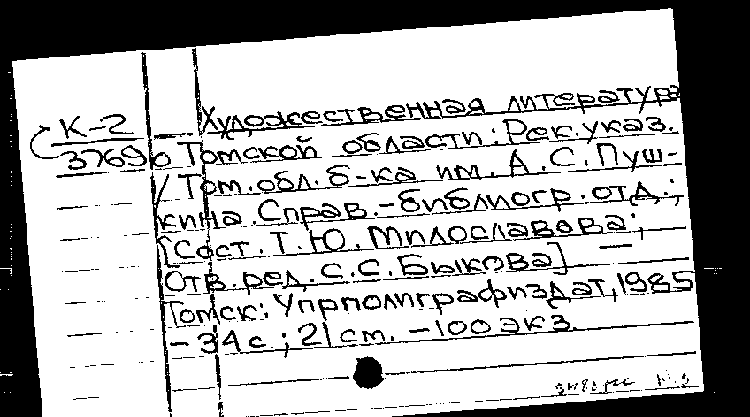 К-2
37690
Художественная литература
Томской области: Рек. указ.
/ Том. обл. б-ка им. А.С. Пуш-
кина. Справ.-библиогр. отд.;
[Сост. Т.Ю. Милославова;
Отв. ред. С.С. Быкова] —
Томск: Упрполиграфиздат, 1985
- 34 с; 21 cm. - 100 экз.